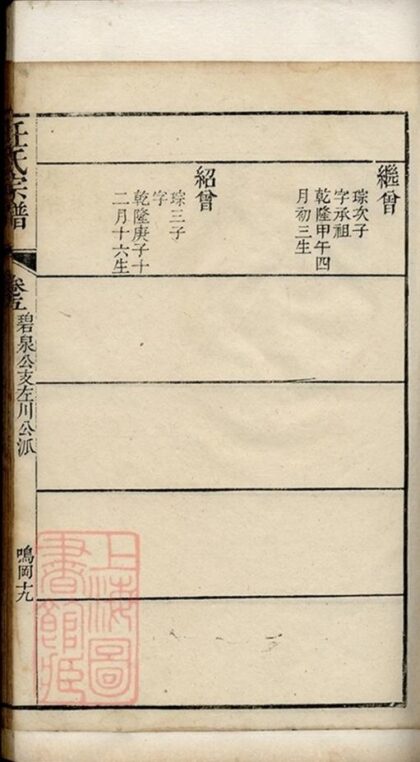 繼曾
琮次子
字承祖
乾隆甲午四
月初三生
紹曾
琮三子
字
乾隆庚子十
二月十六生
氏宗譜
卷五
碧泉公支左川公派
鳴岡十九
上海圖
書館藏